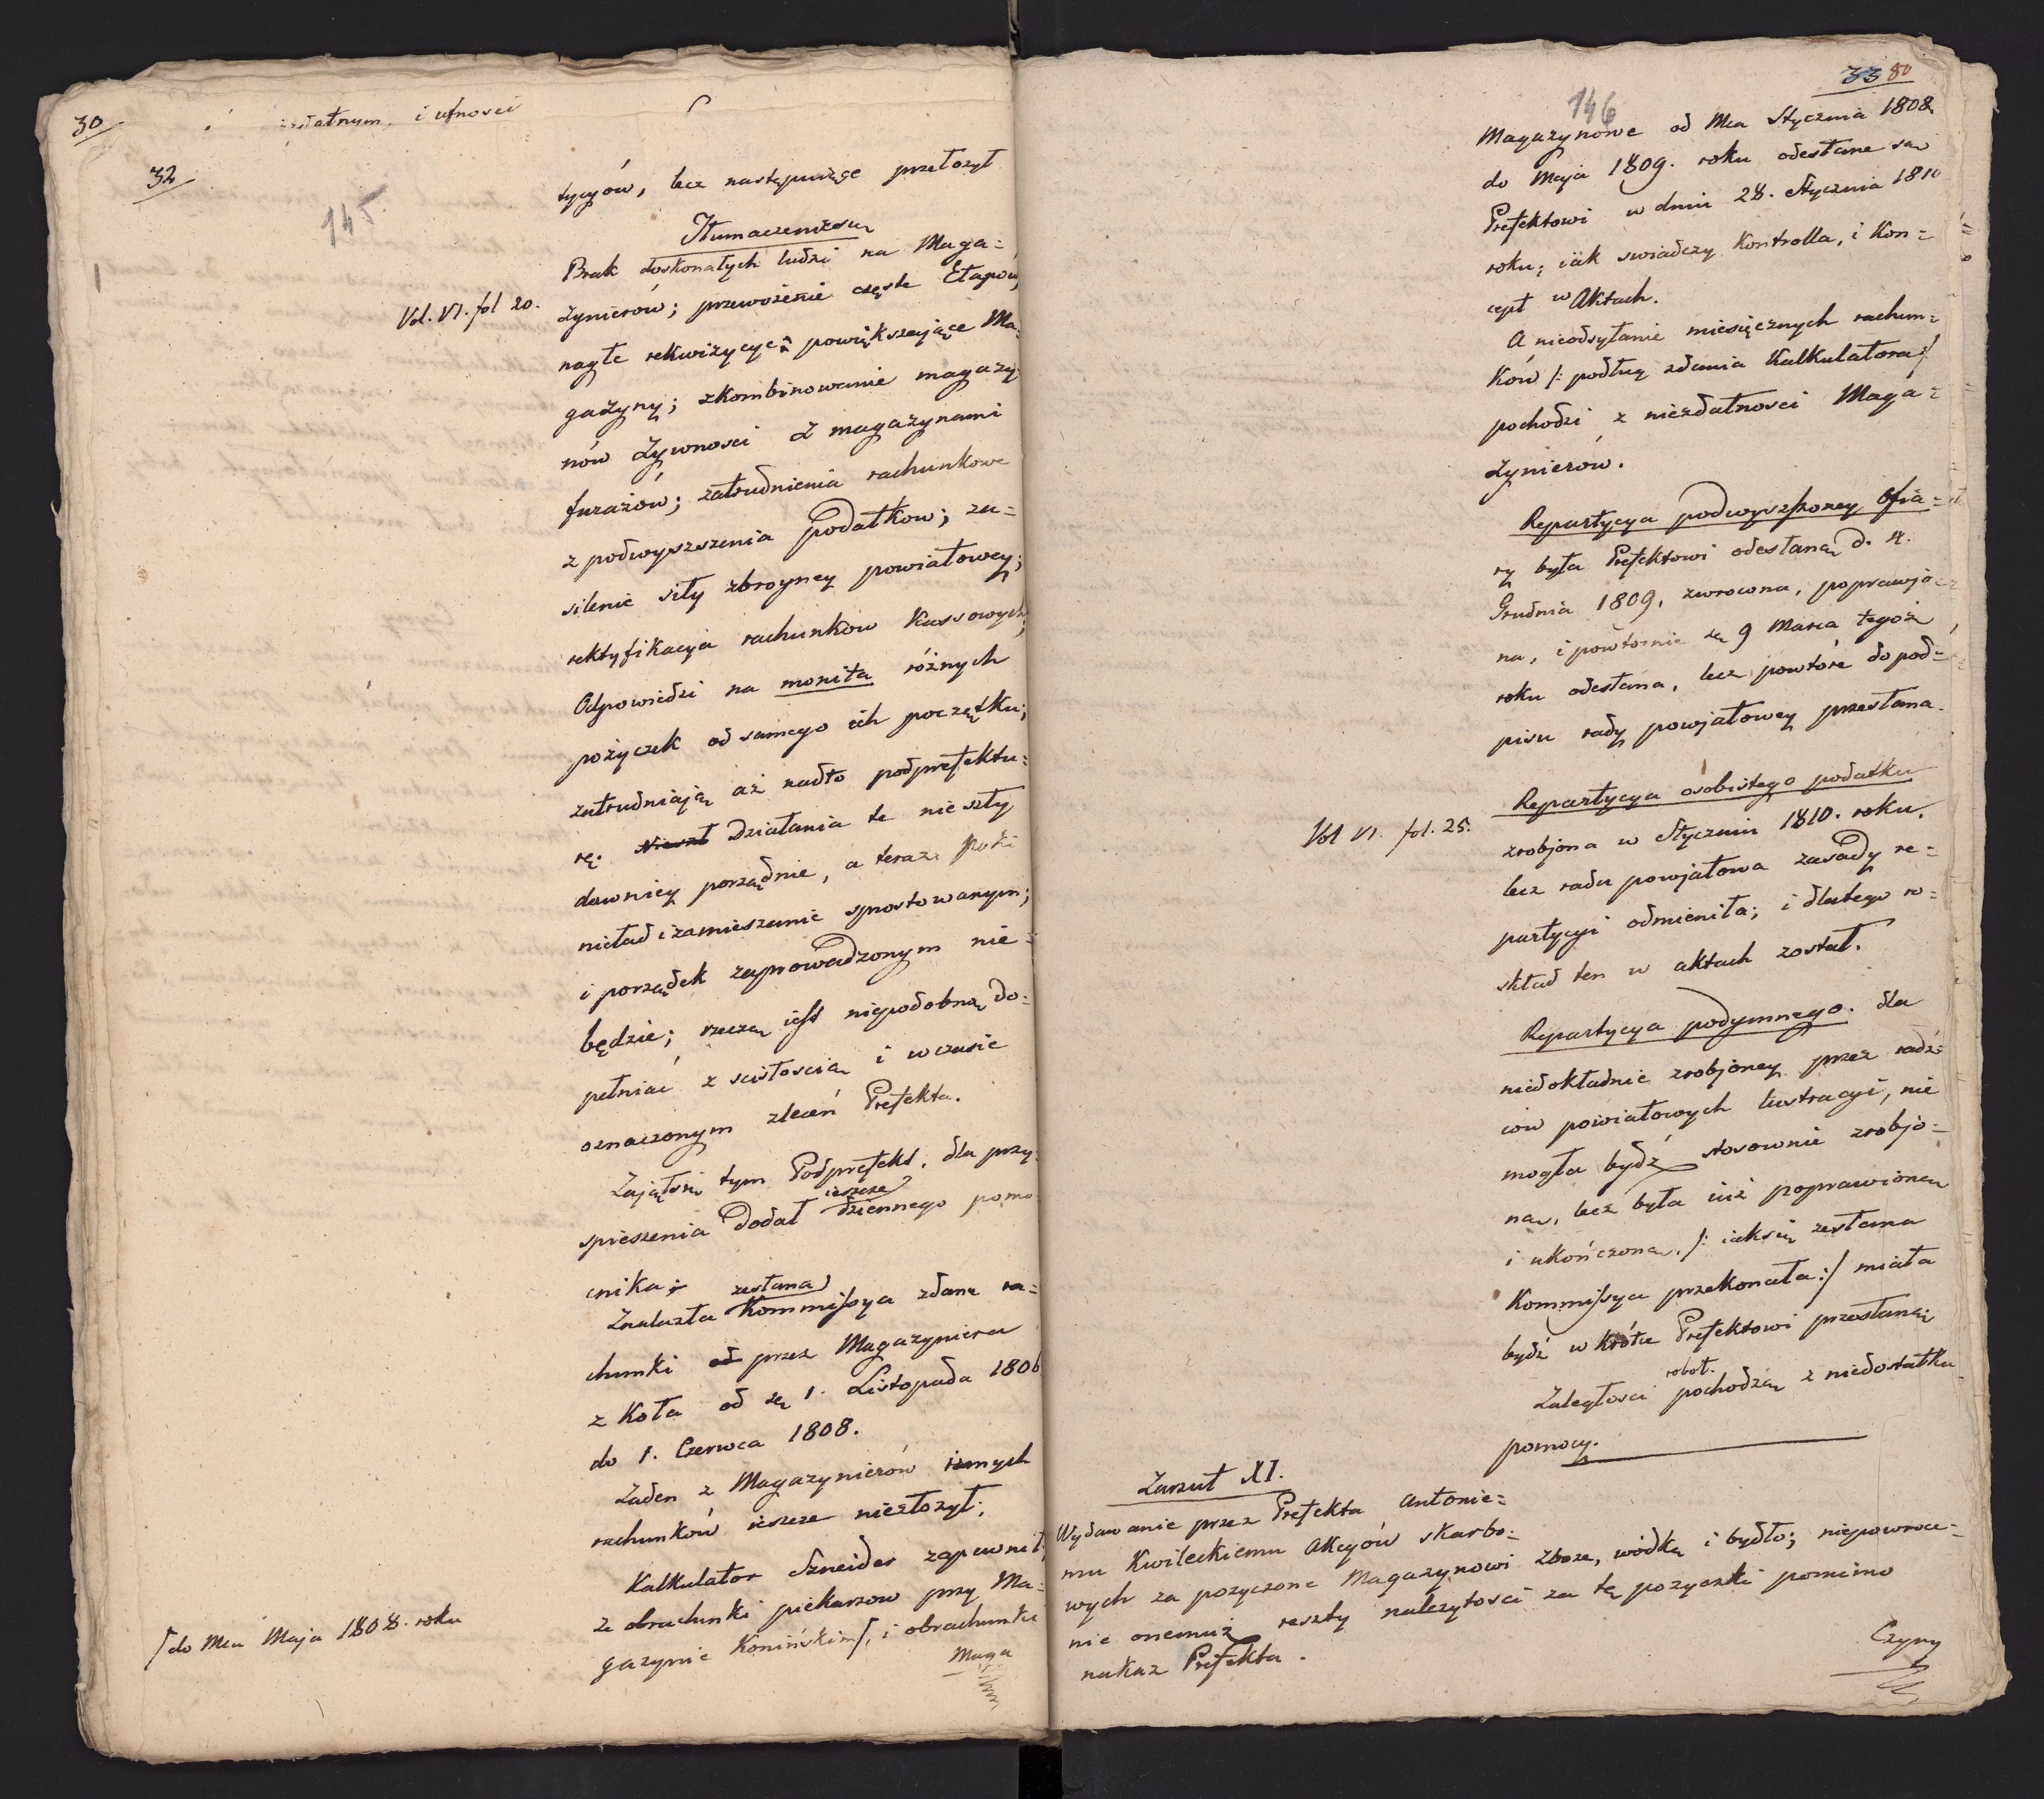 30
zdatnym, i ufnosci
32
145
tycyów, lecz następuiące przełozył
Tłumaczenie
Brak doskonałych ludzi na Maga=
Vol. VI. fol 20.
zynierów; przewożenie częste Etapów,
nagłe rekwizycye powiększające Ma=
gazyny; zkombinowanie magazy
nów Zywnosci z magazynami
furażów; zatrudnienia rachunkowe
z podwyszszenia podatkow; za=
silenie siły zbroyney powiatowey;
rektyfikacya rachunków Kassowych;
Odpowiedzi na monita różnych
pożyczek od samego ich początku;
zatrudniaią aż nadto podprefektu=
rę. Działania te nie szły
dawniey porządnie, a teraz poki
nieład i zamieszanie sprostowanym;
i porządek zaprowadzonym nie=
będzie; rzeczą iest niepodobną do=
pełniać z scisłoscią i w czasie
oznaczonym zleceń Prefekta.
Zajął się tym Podprefekt, dla przy=
spieszenia dodał ieszcze dziennego pomo
cnika;
Znalazła zesłana Kommissya zdane ra=
chunki od przez Magazyniera
z Koła od 1. Listopada 1806
do 1. Czerwca 1808.
Zaden z Magazynierów innych
rachunków ieszcze niezłożył;
Kalkulator Szneider zapewnił,
że obrachunki piekarzow przy Ma=
[do Mca Maja 1808. roku
gazynie Konińskim[, i obrachunki
Maga
33 80
146
Magazynowe od Mca Stycznia 1808
do Maja 1809. roku odesłane są
Prefektowi w dniu 28. Stycznia 1810
roku; iák swiadczy Kontrolla, i Kon=
cept w Aktach.
A nieodsyłanie miesięcznych rachun=
ków /: podług zdania Kalkulatora:/
pochodzi z niezdatnosci Maga=
zynierów.
Repartycya podwyszszoney Ofia=
ry była Prefektowi odesłaną d. 4.
Grudnia 1809, zwrocona, poprawjo=
na, i powtornie 9 Marca tegoż
roku odesłana, lecz powtóre do pod=
pisu rady powjatowey przesłana.
Repartycya osobistego podatku
Vol VI. fol. 25.
zrobjona w Styczniu 1810. roku,
lecz rada powjatowa zasady re=
partycyi odmieniła; i dlatego ro=
skład ten w aktach został.
Repartycya podymnego. dla
niedokładnie zrobjoney przez radź=
ców powiatowych lustracyi, nie
mogła bydź stosownie zrobjo=
na, lecz była iuż poprawioną
i ukończoną, /: iak się zesłana
Kommissya przekonała:/ miała
bydź wkrótce Prefektowi przesłaną.
Zaległosci robot. pochodzą z niedostatku
pomocy.
Zarzut XI.
Wydawanie przez Prefekta Antonie=
mu Kwileckiemu Akcyów skarbo=
wych za pozyczone Magazynowi zboze, wódkę i bydło; niepowroce=
nie onemuż reszty należytosci za tę pozyczki pomimo
nakaz Prefekta.
Czyny